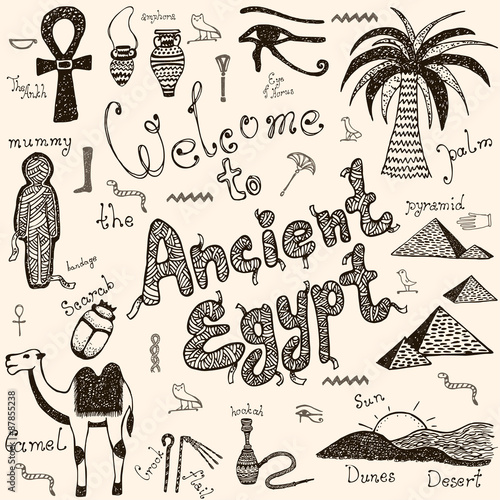 amphora
The Ankh
Eye of Horus
Welcome
to
the
Ancient
Egypt
mummy
palm
pyramid
bandage
Scarab
Camel
Crook
flail
hookah
Sun
Dunes
Desert
Adobe Stock
87855238